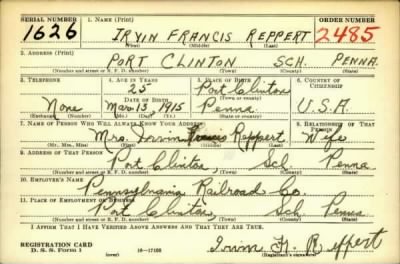 SERIAL NUMBER 1. NAME (Print) ORDER NUMBER
1626 IRVIN FRANCIS REPPERT 2485
(First) (Middle) (Last)
2. ADDRESS (Print)
PORT CLINTON SCH. PENNA.
(Number and street or R. F. D. number) (Town) (County) (State)
3. TELEPHONE 4. AGE IN YEARS 5. PLACE OF BIRTH 6. COUNTRY OF CITIZENSHIP
25 Port Clinton
DATE OF BIRTH (Town or county)
None Mar. 13, 1915 Penna U.S.A.
(Exchange) (Number) (Mo.) (Day) (Yr.) (State or country)
7. NAME OF PERSON WHO WILL ALWAYS KNOW YOUR ADDRESS 8. RELATIONSHIP OF THAT PERSON
Mrs. Irvin Francis Reppert Wife
(Mr., Mrs., Miss) (First) (Middle) (Last)
9. ADDRESS OF THAT PERSON
Port Clinton Sch Penna
(Number and street or R. F. D. number) (Town) (County) (State)
10. EMPLOYER'S NAME
Pennsylvania Railroad Co.
11. PLACE OF EMPLOYMENT OR BUSINESS
Port Clinton Sch Penna
(Number and street or R. F. D. number) (Town) (County) (State)
I AFFIRM THAT I HAVE VERIFIED ABOVE ANSWERS AND THAT THEY ARE TRUE.
REGISTRATION CARD
D. S. S. Form 1 (over) 16—17105 (Registrant's signature)
Irvin F. Reppert